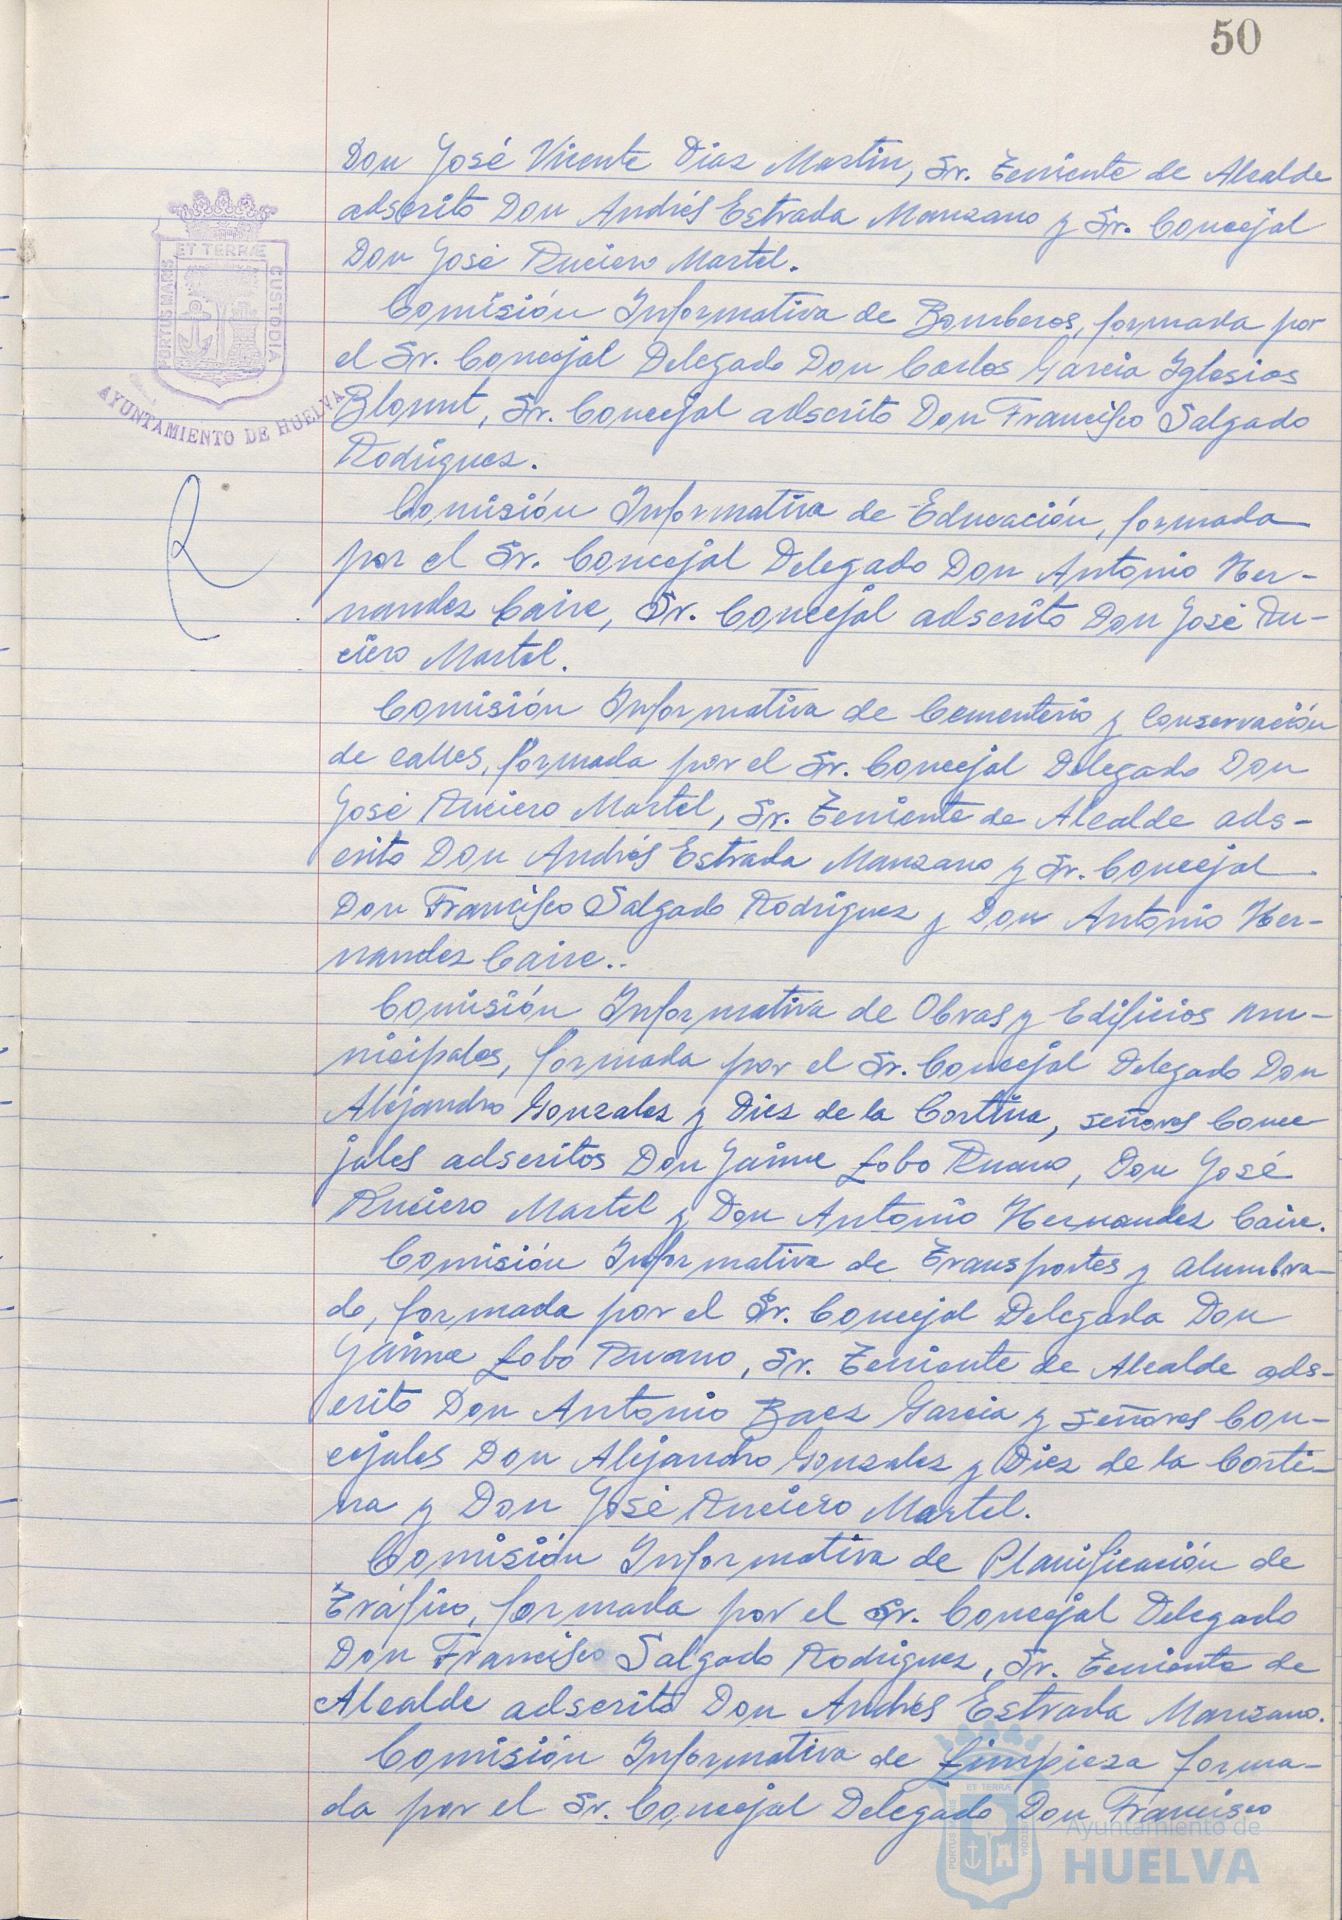 50
Don José Vicente Diaz Martin, Sr. Teniente de Alcalde
adscrito Don Andrés Estrada Manzano y Sr. Concejal
Don José Ruciero Martel.
Comisión Informativa de Bomberos, formada por
el Sr. Concejal Delegado Don Carlos Garcia Iglesias
Blount, Sr. Concejal adscrito Don Francisco Salgado
Rodriguez.
Comisión Informativa de Educación, formada
por el Sr. Concejal Delegado Don Antonio Her-
nandez Caire, Sr. Concejal adscrito Don José Ru-
ciero Martel.
Comisión Informativa de Cementerio y Conservación
de calles, formada por el Sr. Concejal Delegado Don
José Ruciero Martel, Sr. Teniente de Alcalde ads-
crito Don Andrés Estrada Manzano y Sr. Concejal
Don Francisco Salgado Rodriguez y Don Antonio Her-
nandez Caire..
Comisión Informativa de Obras y Edificios mu-
nicipales, formada por el Sr. Concejal Delegado Don
Alejandro Gonzalez y Diez de la Cortina, señores Conce
jales adscritos Don Jaime Lobo Ruano, Don José
Ruciero Martel y Don Antonio Hernandez Caire.
Comisión Informativa de Transportes y alumbra-
do, formada por el Sr. Concejal Delegada Don
Jaime Lobo Ruano, Sr. Teniente de Alcalde ads-
crito Don Antonio Baez Garcia y señores Con-
cejales Don Alejandro Gonzalez y Diez de la Corti-
na y Don José Ruciero Martel.
Comisión Informativa de Planificación de
Tráfico, formada por el Sr. Concejal Delegado
Don Francisco Salgado Rodriguez, Sr. Teniente de
Alcalde adscrito Don Andrés Estrada Manzano.
Comisión Informativa de Limpieza forma-
da por el Sr. Concejal Delegado Don Francisco
PORTUS MARIS ET TERRÆ CUSTODIA
AYUNTAMIENTO DE HUELVA
PORTUS MARIS ET TERRÆ CUSTODIA
Ayuntamiento de
HUELVA